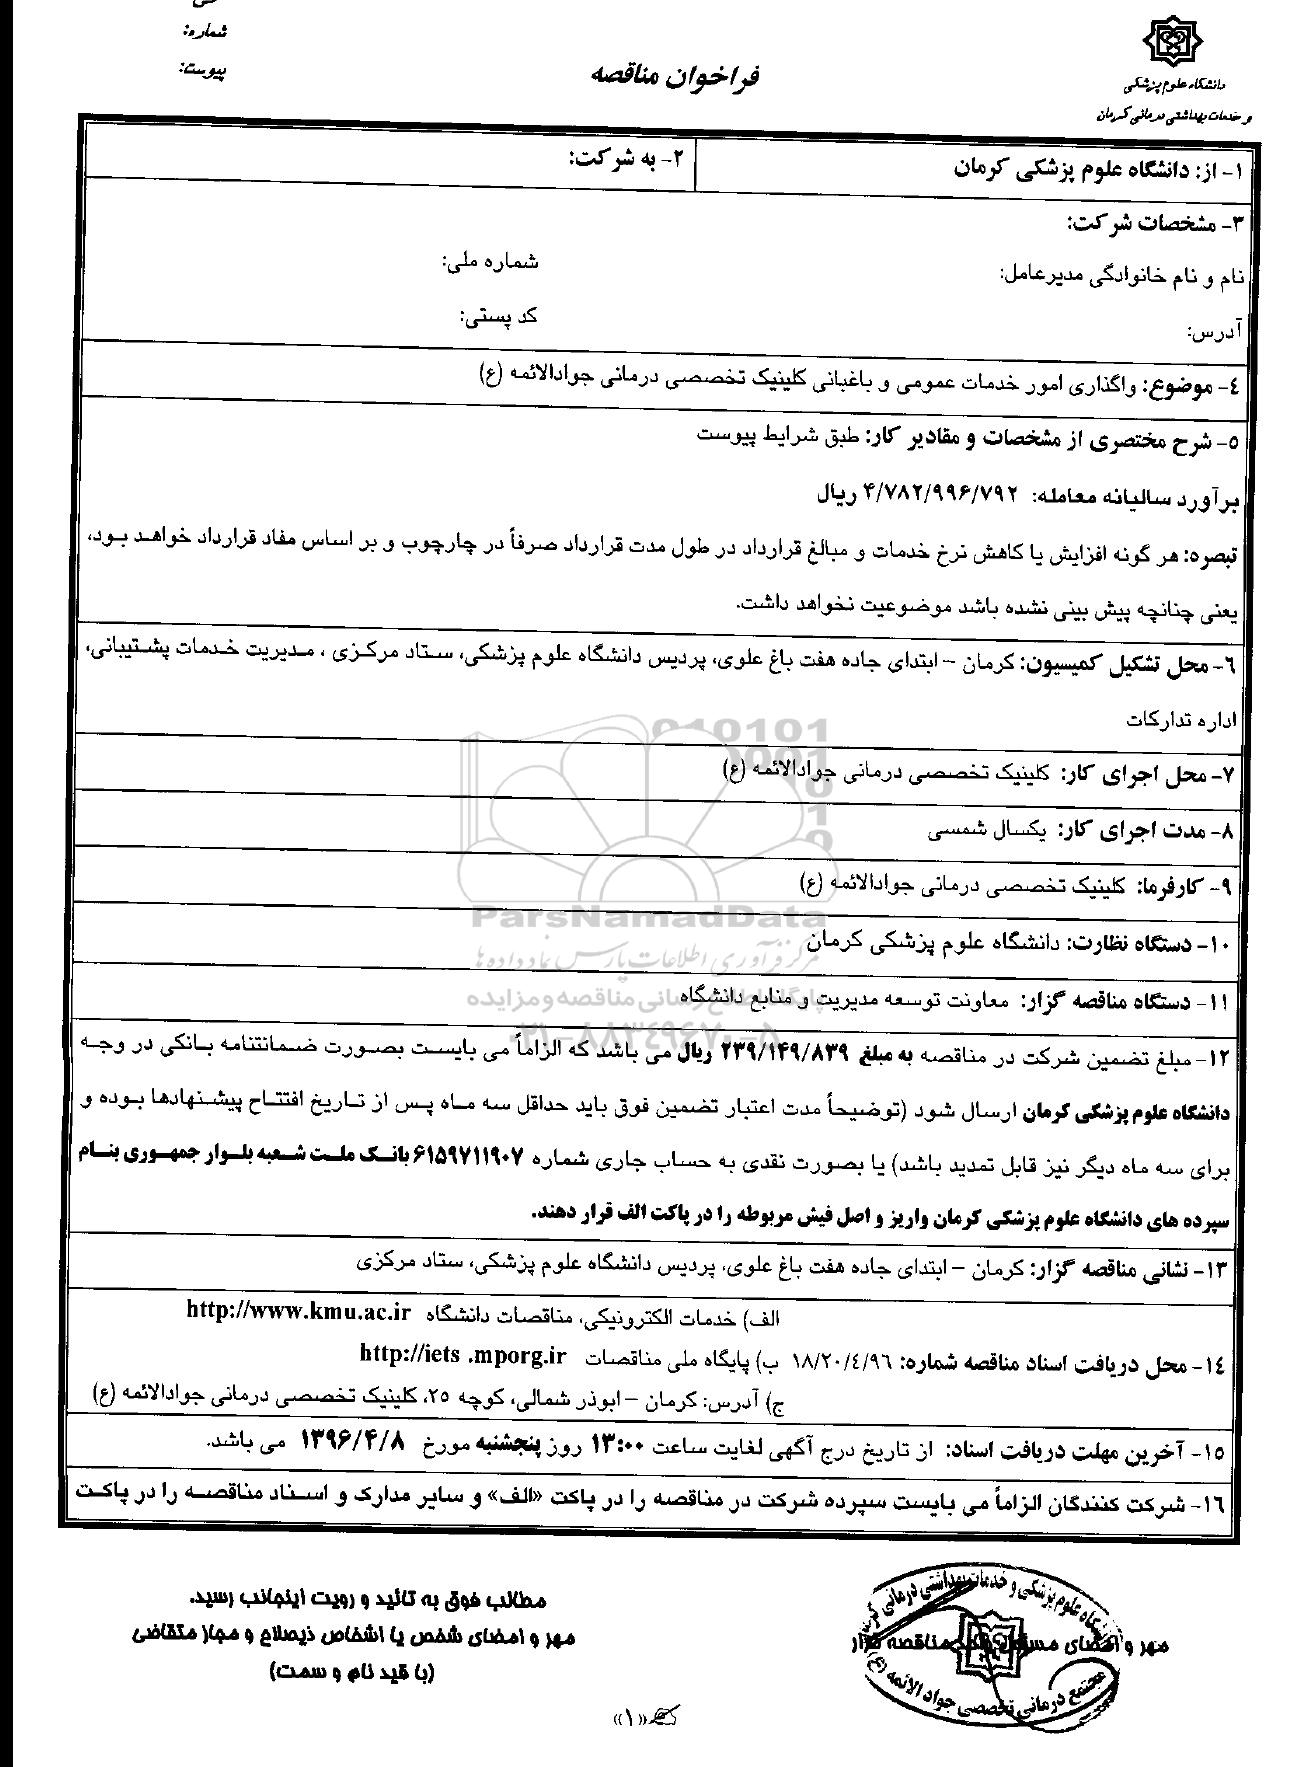 شماره:
پیوست:
فراخوان مناقصه
دانشگاه علوم پزشکی
و خدمات بهداشتی درمانی کرمان
۱- از: دانشگاه علوم پزشکی کرمان
۲- به شرکت:
۳- مشخصات شرکت:
نام و نام خانوادگی مدیرعامل:
شماره ملی:
آدرس:
کد پستی:
۴- موضوع: واگذاری امور خدمات عمومی و باغبانی کلینیک تخصصی درمانی جوادالائمه (ع)
۵- شرح مختصری از مشخصات و مقادیر کار: طبق شرایط پیوست
برآورد سالیانه معامله: ۴/۷۸۲/۹۹۶/۷۹۲ ریال
تبصره: هر گونه افزایش یا کاهش نرخ خدمات و مبالغ قرارداد در طول مدت قرارداد صرفاً در چارچوب و بر اساس مفاد قرارداد خواهد بود،
یعنی چنانچه پیش بینی نشده باشد موضوعیت نخواهد داشت.
۶- محل تشکیل کمیسیون: کرمان – ابتدای جاده هفت باغ علوی، پردیس دانشگاه علوم پزشکی، ستاد مرکزی ، مدیریت خدمات پشتیبانی،
اداره تدارکات
۷- محل اجرای کار: کلینیک تخصصی درمانی جوادالائمه (ع)
۸- مدت اجرای کار: یکسال شمسی
۹- کارفرما: کلینیک تخصصی درمانی جوادالائمه (ع)
ParsNamadData
۱۰- دستگاه نظارت: دانشگاه علوم پزشکی کرمان
مرکز فرآوری اطلاعات پارس نماد داده ها
۱۱- دستگاه مناقصه گزار: معاونت توسعه مدیریت و منابع دانشگاه
پایگاه اطلاع رسانی مناقصه و مزایده
۰۲۱-۸۸۳۴۹۶۷۰-۵
۱۲- مبلغ تضمین شرکت در مناقصه به مبلغ ۲۳۹/۱۴۹/۸۳۹ ریال می باشد که الزاماً می بایست بصورت ضمانتنامه بانکی در وجه
دانشگاه علوم پزشکی کرمان ارسال شود (توضیحاً مدت اعتبار تضمین فوق باید حداقل سه ماه پس از تاریخ افتتاح پیشنهادها بوده و
برای سه ماه دیگر نیز قابل تمدید باشد) یا بصورت نقدی به حساب جاری شماره ۶۱۵۹۷۱۱۹۰۷ بانک ملت شعبه بلوار جمهوری بنام
سپرده های دانشگاه علوم پزشکی کرمان واریز و اصل فیش مربوطه را در پاکت الف قرار دهند.
۱۳- نشانی مناقصه گزار: کرمان – ابتدای جاده هفت باغ علوی، پردیس دانشگاه علوم پزشکی، ستاد مرکزی
الف) خدمات الکترونیکی، مناقصات دانشگاه http://www.kmu.ac.ir
۱۴- محل دریافت اسناد مناقصه شماره: ۱۸/۲۰/٤/۹۶ ب) پایگاه ملی مناقصات http://iets .mporg.ir
ج) آدرس: کرمان – ابوذر شمالی، کوچه ۲۵، کلینیک تخصصی درمانی جوادالائمه (ع)
۱۵- آخرین مهلت دریافت اسناد: از تاریخ درج آگهی لغایت ساعت ۱۳:۰۰ روز پنجشنبه مورخ ۱۳۹۶/۴/۸ می باشد.
۱۶- شرکت کنندگان الزاماً می بایست سپرده شرکت در مناقصه را در پاکت «الف» و سایر مدارک و اسناد مناقصه را در پاکت
مطالب فوق به تائید و رویت اینجانب رسید.
مهر و امضای شخص یا اشخاص ذیصلاح و مجاز متقاضی
(با قید نام و سمت)
مهر و امضای مسئول واحد مناقصه گزار
دانشگاه علوم پزشکی و خدمات بهداشتی درمانی کرمان
مجتمع درمانی تخصصی جواد الائمه (ع)
«۱»